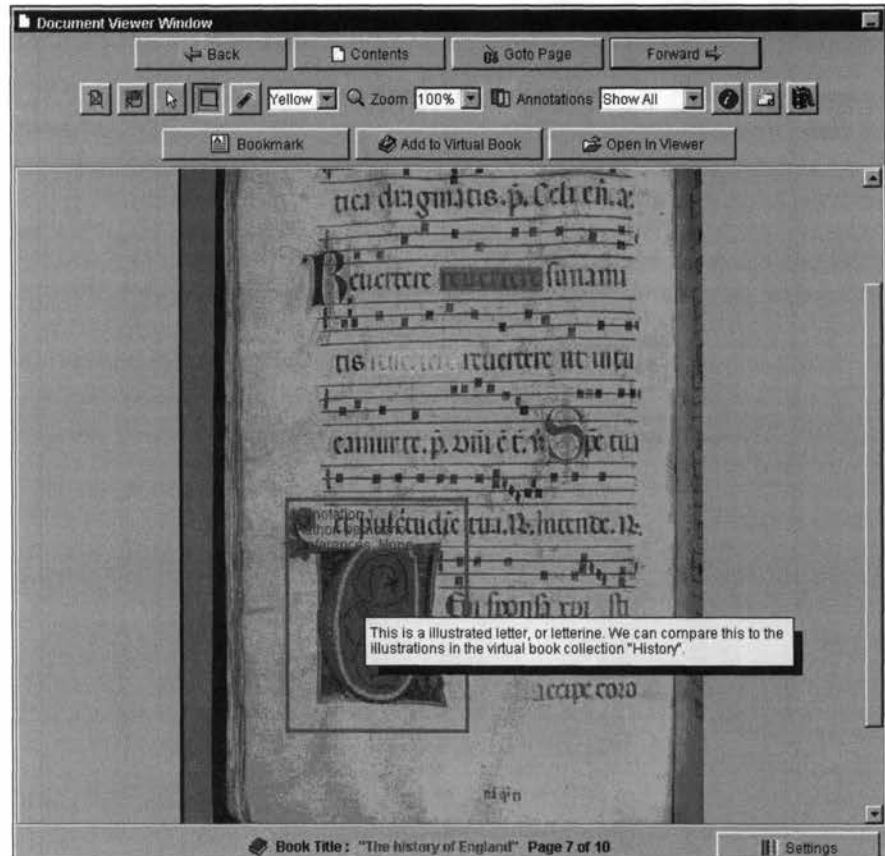 Document Viewer Window
Back Contents Goto Page Forward
Yellow Zoom 100% Annotations Show All
Bookmark Add to Virtual Book Open In Viewer
tica dragmatis. p̄. Celi eñ. a.
Reuertere reuertere sunami
tis reuertere reuertere ut intu
eamur te. p̄.
Spe tua
tua. Intende.
sponsa
This is a illustrated letter, or letterine. We can compare this to the
illustrations in the virtual book collection "History".
accipe coro
Book Title : "The history of England" Page 7 of 10 Settings